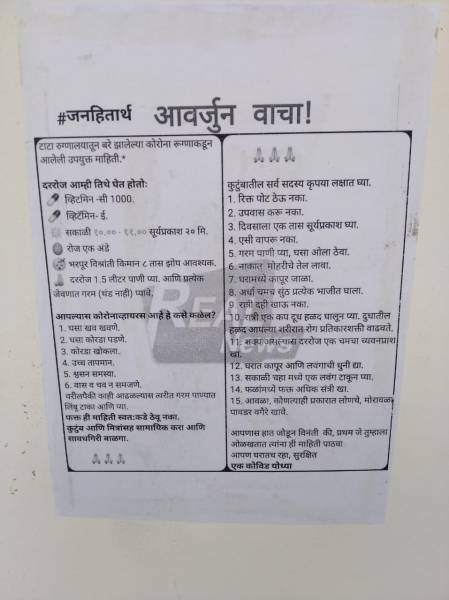 #जनहितार्थ आवर्जुन वाचा!
टाटा रुग्णालयातून बरे झालेल्या कोरोना रूग्णाकडून
आलेली उपयुक्त माहिती.*
दररोज आम्ही तिथे घेत होतो:
व्हिटमिन -सी 1000.
व्हिटॅमिन- ई.
सकाळी १०.०० - ११.०० सूर्यप्रकाश २० मि.
रोज एक अंडे
भरपूर विश्रांती किमान ८ तास झोप आवश्यक.
दररोज 1.5 लीटर पाणी प्या. आणि प्रत्येक
जेवणात गरम (थंड नाही) प्यावे.
आपल्यास कोरोनाव्हायरस आहे हे कसे कळेल?
1. घसा खव खवणे.
2. घसा कोरडा पडणे.
3. कोरडा खोकला.
4. उच्च तापमान.
5. श्वसन समस्या.
6. वास व चव न समजणे.
वरीलपैकी काही आढळल्यास त्वरीत गरम पाण्यात
लिंबू टाका आणि प्या.
फक्त ही माहिती स्वत:कडे ठेवू नका.
कुटुंब आणि मित्रांसह सामायिक करा आणि
सावधगिरी बाळगा.
कुटुंबातील सर्व सदस्य कृपया लक्षात घ्या.
1. रिक्त पोट ठेऊ नका.
2. उपवास करू नका.
3. दिवसाला एक तास सूर्यप्रकाश घ्या.
4. एसी वापरू नका.
5. गरम पाणी प्या, घसा ओला ठेवा.
6. नाकात मोहरीचे तेल लावा.
7. घरामध्ये कापूर जाळा.
8. अर्धा चमच सुंठ प्रत्येक भाजीत घाला.
9. रात्री दही खाऊ नका.
10. रात्री एक कप दूध हळद घालून प्या. दुधातील
हळद आपल्या शरीरात रोग प्रतिकारशक्ती वाढवते.
11. शक्य असल्यास दररोज एक चमचा च्यवनप्राश
खा.
12. घरात कापूर आणि लवंगाची धुनी द्या.
13. सकाळी चहा मध्ये एक लवंग टाकून प्या.
14. फळांमध्ये फक्त अधिक संत्री खा.
15. आवळा, कोणत्याही प्रकारात लोणचे, मोरावळा
पावडर वगैरे खावे.
आपणास हात जोडून विनंती की, प्रथम जे तुम्हाला
ओळखतात त्यांना ही माहिती पाठवा
आपण घरातच रहा, सुरक्षित
एक कोविड योध्दा
News